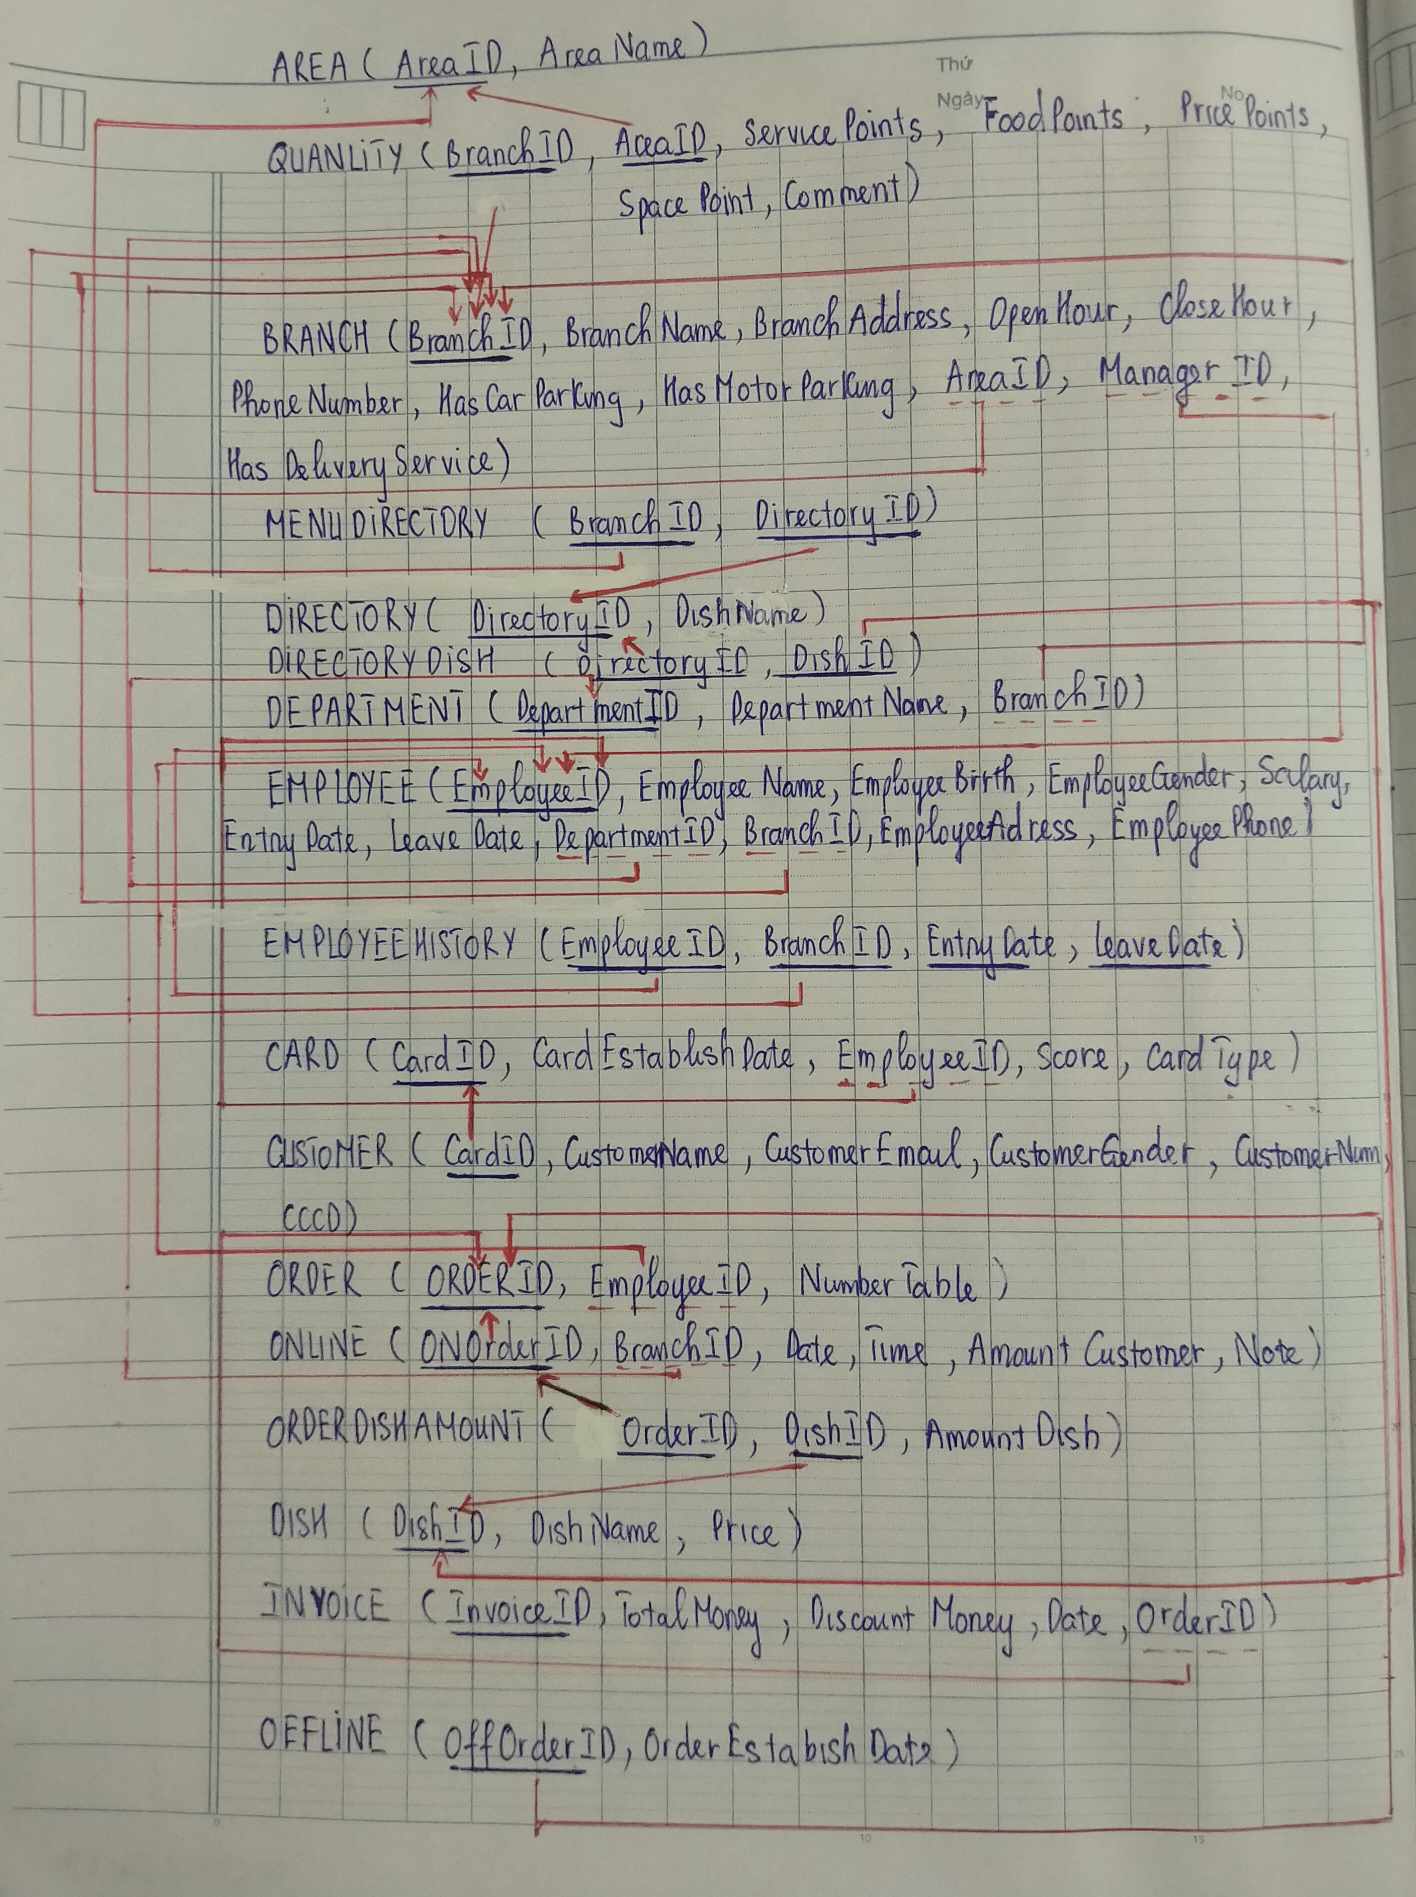 AREA ( AreaID, AreaName )
Thứ
Ngày
No
QUANLITY ( BranchID, AreaID, Service Points, FoodPoints, Price Points,
Space Point, Comment )
BRANCH ( BranchID, Branch Name, Branch Address, Open Hour, Close Hour,
Phone Number, Has Car Parking, Has Motor Parking, AreaID, Manager ID,
Has Delivery Service )
MENUDIRECTORY ( BranchID, DirectoryID )
DIRECTORY ( DirectoryID, DishName )
DIRECTORYDISH ( DirectoryID, DishID )
DEPARTMENT ( DepartmentID, DepartmentName, BranchID )
EMPLOYEE ( EmployeeID, Employee Name, EmployeeBirth, EmployeeGender, Salary,
Entry Date, Leave Date, DepartmentID, BranchID, EmployeeAdress, EmployeePhone )
EMPLOYEEHISTORY ( EmployeeID, BranchID, EntryDate, LeaveDate )
CARD ( CardID, CardEstablishDate, EmployeeID, Score, CardType )
CUSTOMER ( CardID, CustomerName, CustomerEmail, CustomerGender, CustomerNum,
CCCD )
ORDER ( ORDERID, EmployeeID, NumberTable )
ONLINE ( ONOrderID, BranchID, Date, Time, Amount Customer, Note )
ORDERDISHAMOUNT ( OrderID, DishID, Amount Dish )
DISH ( DishID, DishName, Price )
INVOICE ( InvoiceID, Total Money, Discount Money, Date, OrderID )
OFFLINE ( OffOrderID, OrderEstabishDate )
10
15